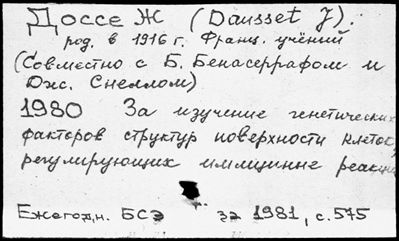 Доссе Ж (Dausset J).
род. в 1916 г. Франц. учёный
(Совместно с Б. Бенасеррафом и
Дж. Снеллом)
1980 За изучение генетических
факторов структур поверхности клеток,
регулирующих иммунные реакции
Ежегодн. БСЭ за 1981, с. 575